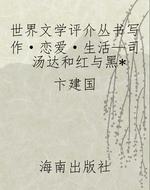 世界文学评介丛书写
作·恋爱·生活—司
汤达和红与黑*
卞建国
海南出版社